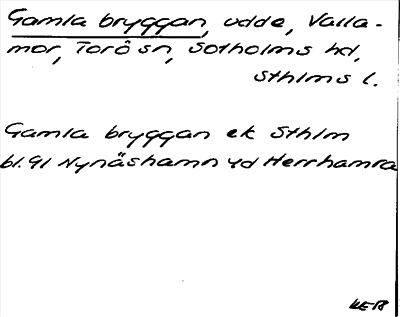 Gamla bryggan, udde, Valla-
mor, Torö sn, Sotholms hd,
Sthlms l.
Gamla bryggan ek Sthlm
bl. 91 Nynäshamn yd Herrhamra
KEB